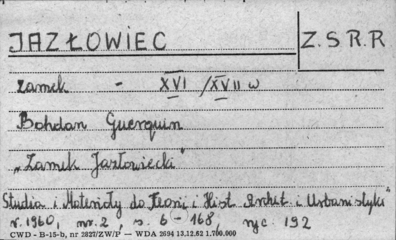 JAZŁOWIEC
Z.S.R.R
zamek - XVI /XVII w
Bohdan Guerquin
„Zamek Jazłowiecki"
Studia i Materiały do Teorii i Hist. Archit. i Urbanistyki"
r. 1960, nr. 2, s. 6-168, ryc. 192
CWD - B-15-b, nr 2827/ZW/P — WDA 2694 13.12.62 1.700.000